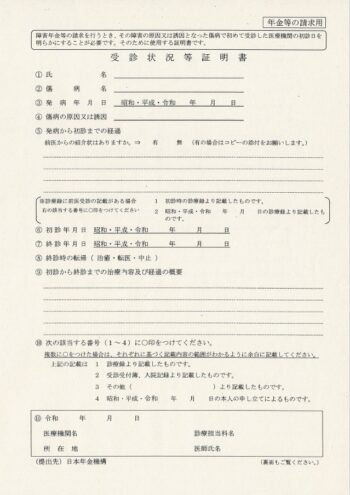 年金等の請求用
障害年金等の請求を行うとき、その障害の原因又は誘因となった傷病で初めて受診した医療機関の初診日を
明らかにすることが必要です。そのために使用する証明書です。
受診状況等証明書
① 氏 名
② 傷 病 名
③ 発 病 年 月 日 昭和・平成・令和 年 月 日
④ 傷病の原因又は誘因
⑤ 発病から初診までの経過
前医からの紹介状はありますか。⇒ 有 無 (有の場合はコピーの添付をお願いします。)
※診療録に前医受診の記載がある場合 1 初診時の診療録より記載したものです。
右の該当する番号に○印をつけてください 2 昭和・平成・令和 年 月 日の診療録より記載したも
のです。
⑥ 初診年月日 昭和・平成・令和 年 月 日
⑦ 終診年月日 昭和・平成・令和 年 月 日
⑧ 終診時の転帰 ( 治癒・転医・中止 )
⑨ 初診から終診までの治療内容及び経過の概要
⑩ 次の該当する番号(1~4)に○印をつけてください。
複数に○をつけた場合は、それぞれに基づく記載内容の範囲がわかるように余白に記載してください。
上記の記載は 1 診療録より記載したものです。
2 受診受付簿、入院記録より記載したものです。
3 その他( )より記載したものです。
4 昭和・平成・令和 年 月 日の本人の申し立てによるものです。
⑪ 令和 年 月 日
医療機関名 診療担当科名
所 在 地 医師氏名
(提出先)日本年金機構 (裏面もご覧ください。)